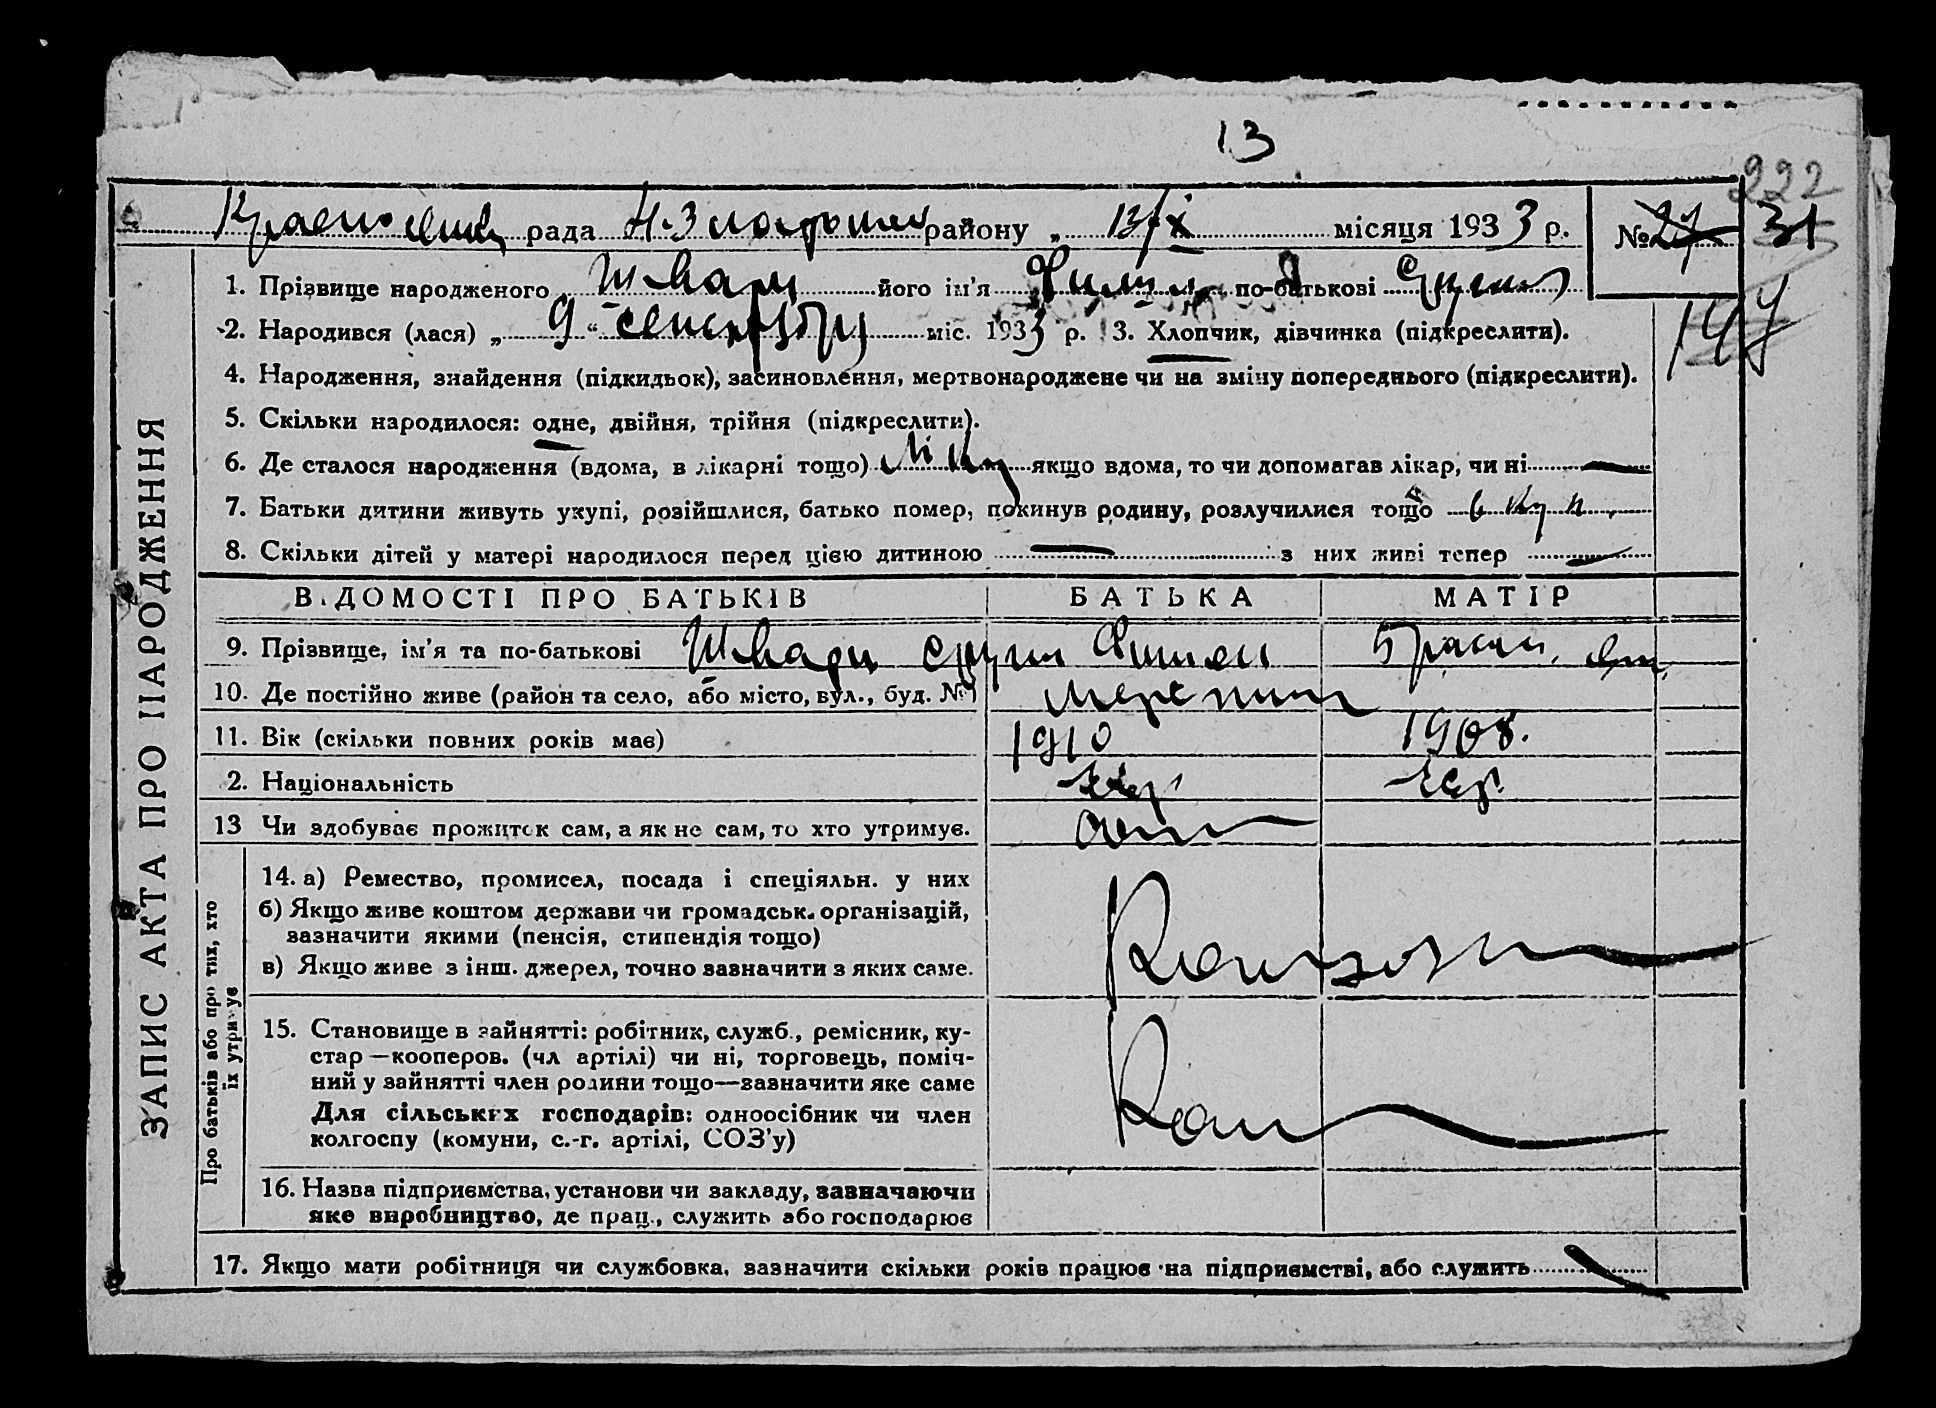 13
222
рада району „ 13/X місяця 1933 р. № 27 31
1. Прізвище народженого Шварц його ім'я по-батькові
147
2. Народився (лася) „ 9 “ сентября міс. 1933 р. 3. Хлопчик, дівчинка (підкреслити).
4. Народження, знайдення (підкидьок), засиновлення, мертвонароджене чи на зміну попереднього (підкреслити).
5. Скільки народилося: одне, двійня, трійня (підкреслити).
6. Де сталося народження (вдома, в лікарні тощо) якщо вдома, то чи допомагав лікар, чи ні —
7. Батьки дитини живуть укупі, розійшлися, батько помер, покинув родину, розлучилися тощо вкуп.
8. Скільки дітей у матері народилося перед цією дитиною — з них живі тепер —
ВІДОМОСТІ ПРО БАТЬКІВ БАТЬКА МАТІР
9. Прізвище, ім'я та по-батькові Шварц
10. Де постійно живе (район та село, або місто, вул., буд. №)
11. Вік (скільки повних років має) 1910 1908.
2. Національність евр. евр.
13 Чи здобуває прожиток сам, а як не сам, то хто утримує.
14. а) Ремество, промисел, посада і спеціяльн. у них
б) Якщо живе коштом держави чи громадськ. організацій,
зазначити якими (пенсія, стипендія тощо)
в) Якщо живе з інш. джерел, точно зазначити з яких саме.
15. Становище в зайнятті: робітник, служб., ремісник, ку-
стар—кооперов. (чл артілі) чи ні, торговець, поміч-
ний у зайнятті член родини тощо—зазначити яке саме
Для сільських господарів: одноосібник чи член
колгоспу (комуни, с.-г. артілі, СОЗ'у)
16. Назва підприємства, установи чи закладу, зазначаючи
яке виробництво, де прац., служить або господарює
17. Якщо мати робітниця чи службовка, зазначити скільки років працює на підприємстві, або служить
ЗАПИС АКТА ПРО НАРОДЖЕННЯ
Про батьків або про тих, хто
їх утримує